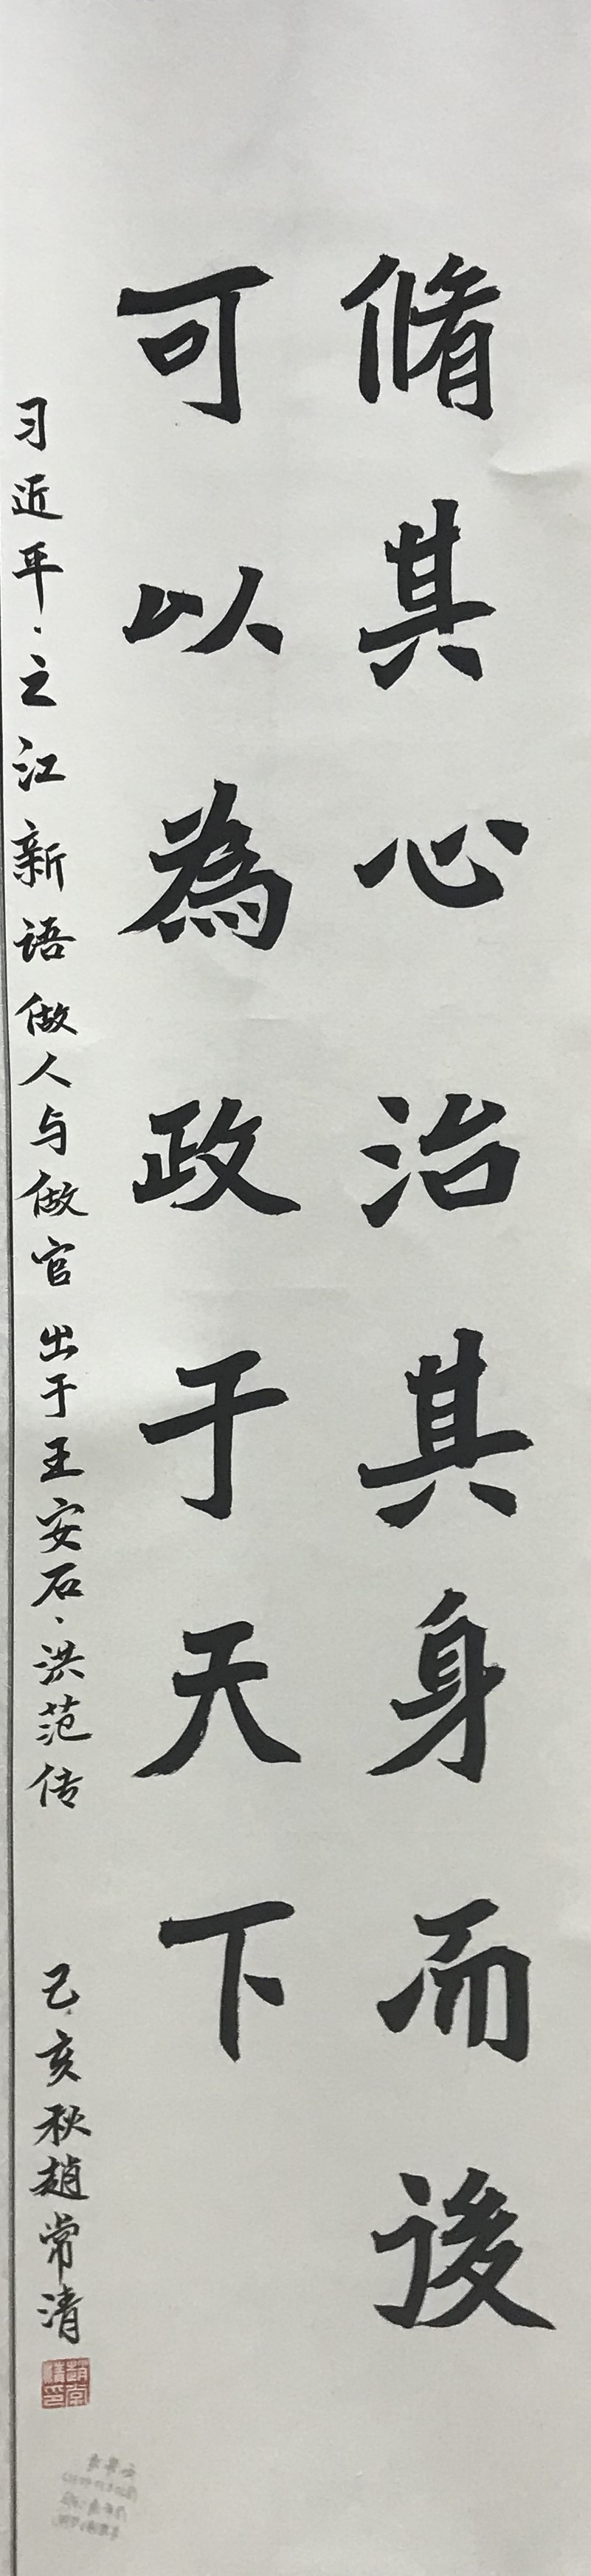 脩其心治其身而後
可以為政于天下
习近平·之江新语做人与做官出于王安石·洪范传
己亥秋趙常清
趙常清印